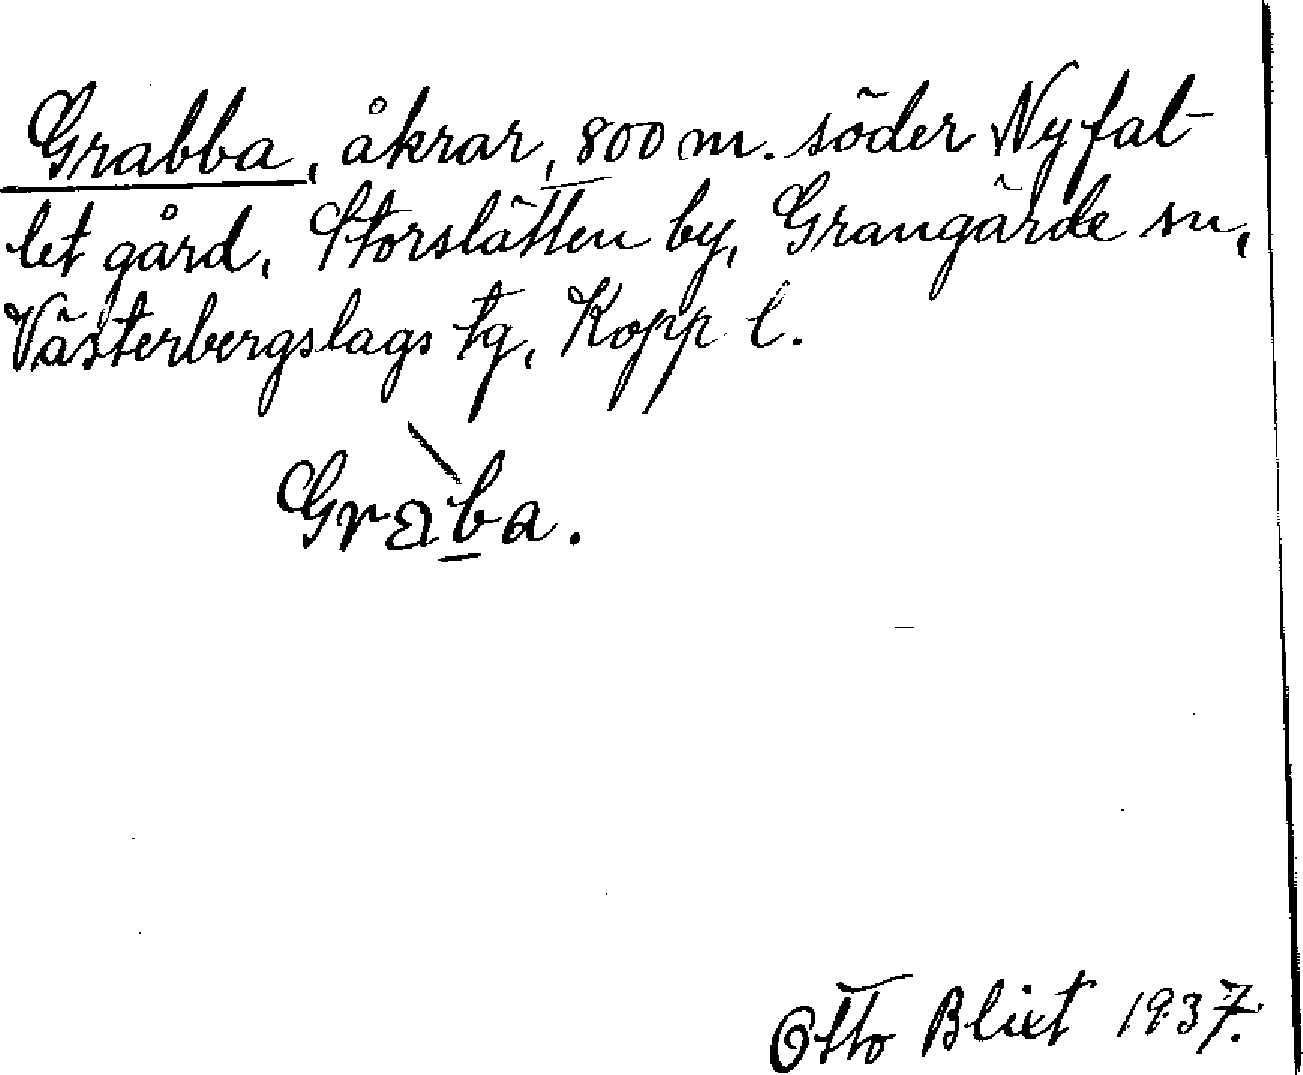 Grabba, åkrar, 800 m. söder Nyfal-
let gård, Storslätten by, Grangärde sn,
Västerbergslags tg, Kopp l.
Graba.
Otto Blixt 1937.